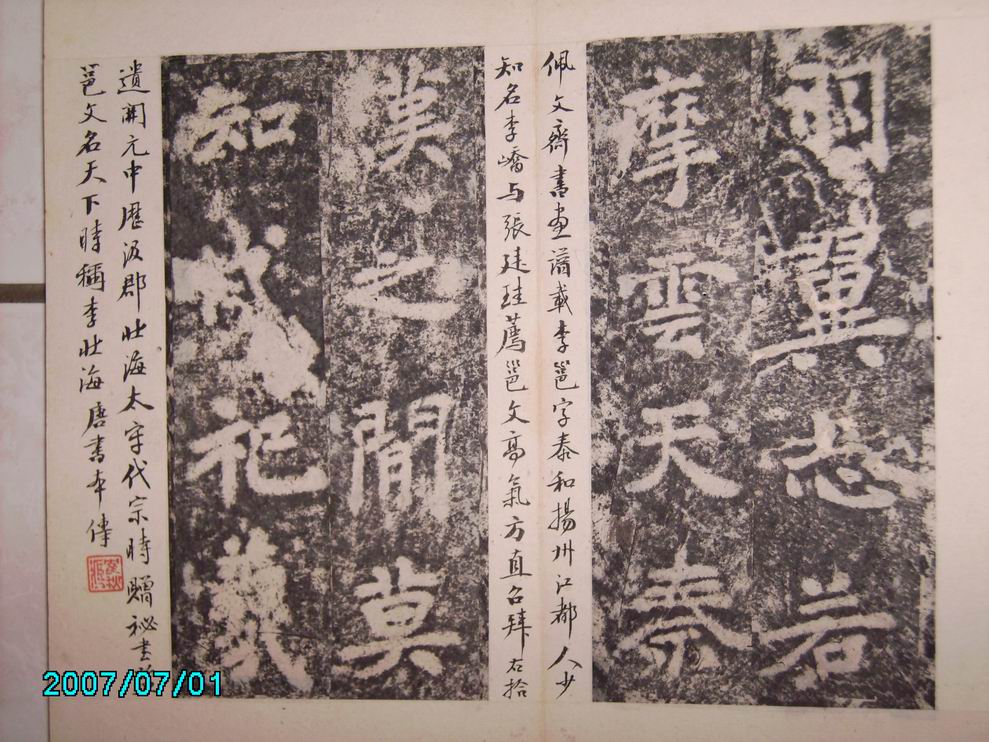 羽翼忽若
摩雲天秦
佩文齋書畫譜載李邕字泰和揚州江都人少
知名李嶠与張廷珪薦邕文高氣方直召拜右拾
漢之閒莫
知代祀
遺開元中歷汲郡北海太守代宗時贈祕書
邕文名天下時稱李北海唐書本傳
2007/07/01